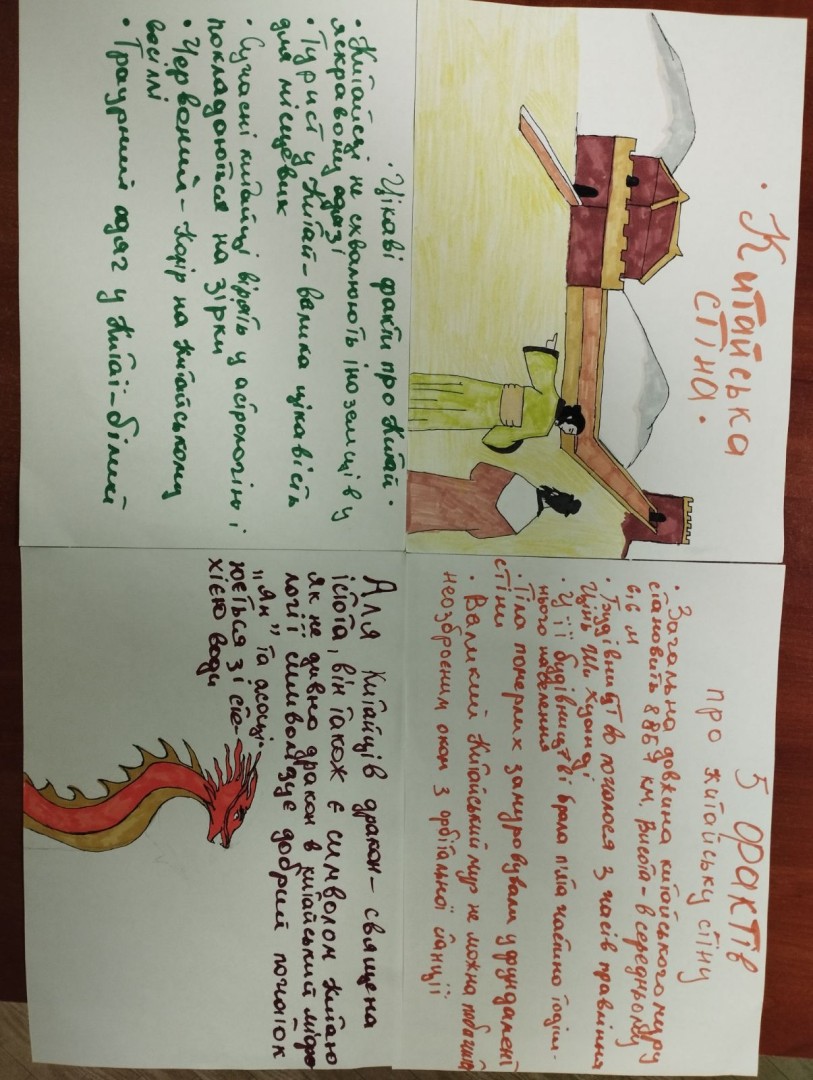 · Китайська
стіна ·
5 фактів
про китайську стіну
· Загальна довжина китайського муру
становить 8851 км, висота - в середньому
6,6 м
· Будівництво почалося з часів правління
Цінь Ши Хуанді
· У її будівництві брала п'ята частина тодіш-
нього населення
· Тіла померлих замуровували у фундамент
стіни
· Великий Китайський мур не можна побачити
неозброєним оком з орбітальної станції
· Цікаві факти про Китай ·
· Китайці не схвалюють іноземців у
яскравому одязі
· Турист у Китаї - велика цікавість
для місцевих
· Сучасні китайці вірять у астрологію і
покладаються на зірки
· Червоний - колір на китайському
весіллі
· Траурний одяг у Китаї - білий
Для Китайців дракон - священа
істота, він також є символом Китаю
як не дивно дракон в китайській міфо
логії символізує добрий початок
„Ян" та асоці-
юється зі сти-
хією води